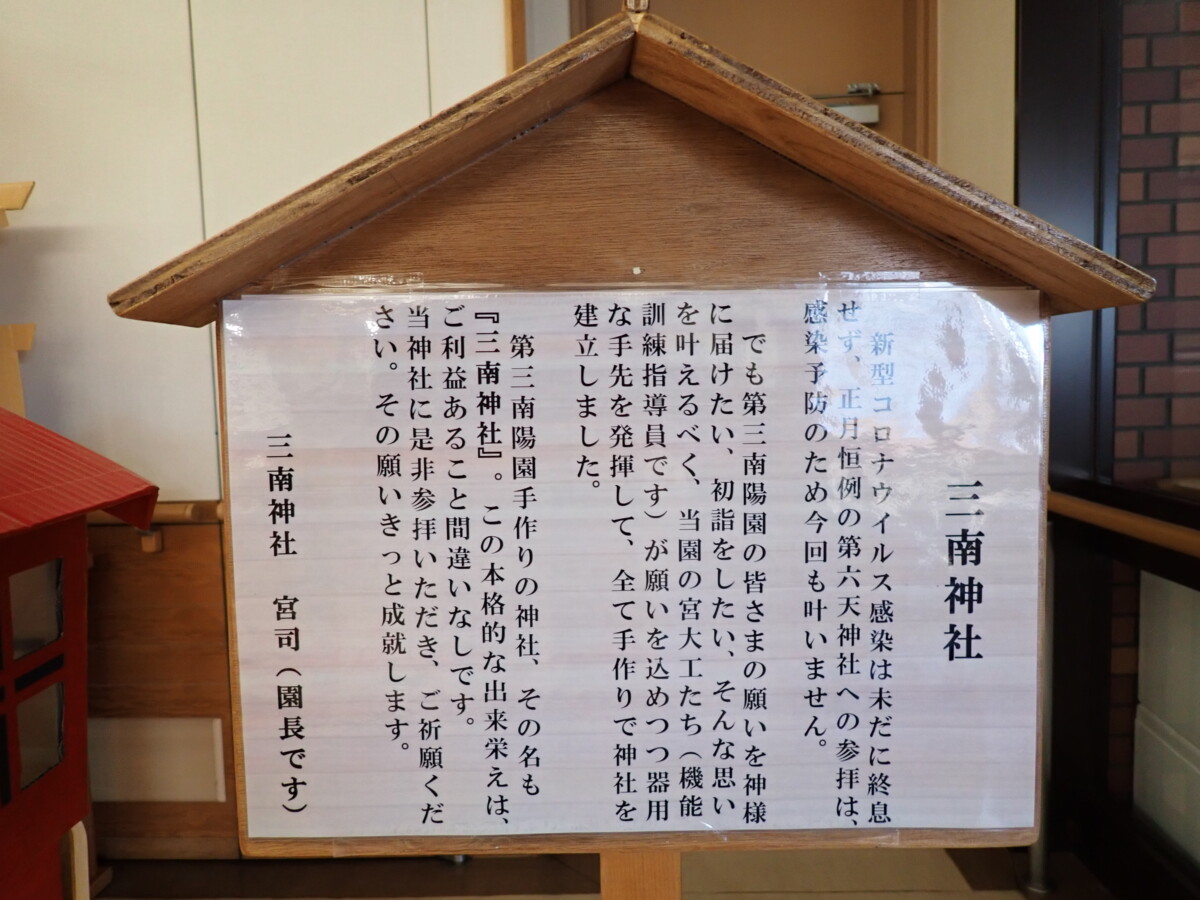 三南神社
新型コロナウイルス感染は未だに終息
せず、正月恒例の第六天神社への参拝は、
感染予防のため今回も叶いません。
でも第三南陽園の皆さまの願いを神様
に届けたい、初詣をしたい、そんな思い
を叶えるべく、当園の宮大工たち（機能
訓練指導員です）が願いを込めつつ器用
な手先を発揮して、全て手作りで神社を
建立しました。
第三南陽園手作りの神社、その名も
『三南神社』。この本格的な出来栄えは、
ご利益あること間違いなしです。
当神社に是非参拝いただき、ご祈願くだ
さい。その願いきっと成就します。
三南神社　宮司（園長です）